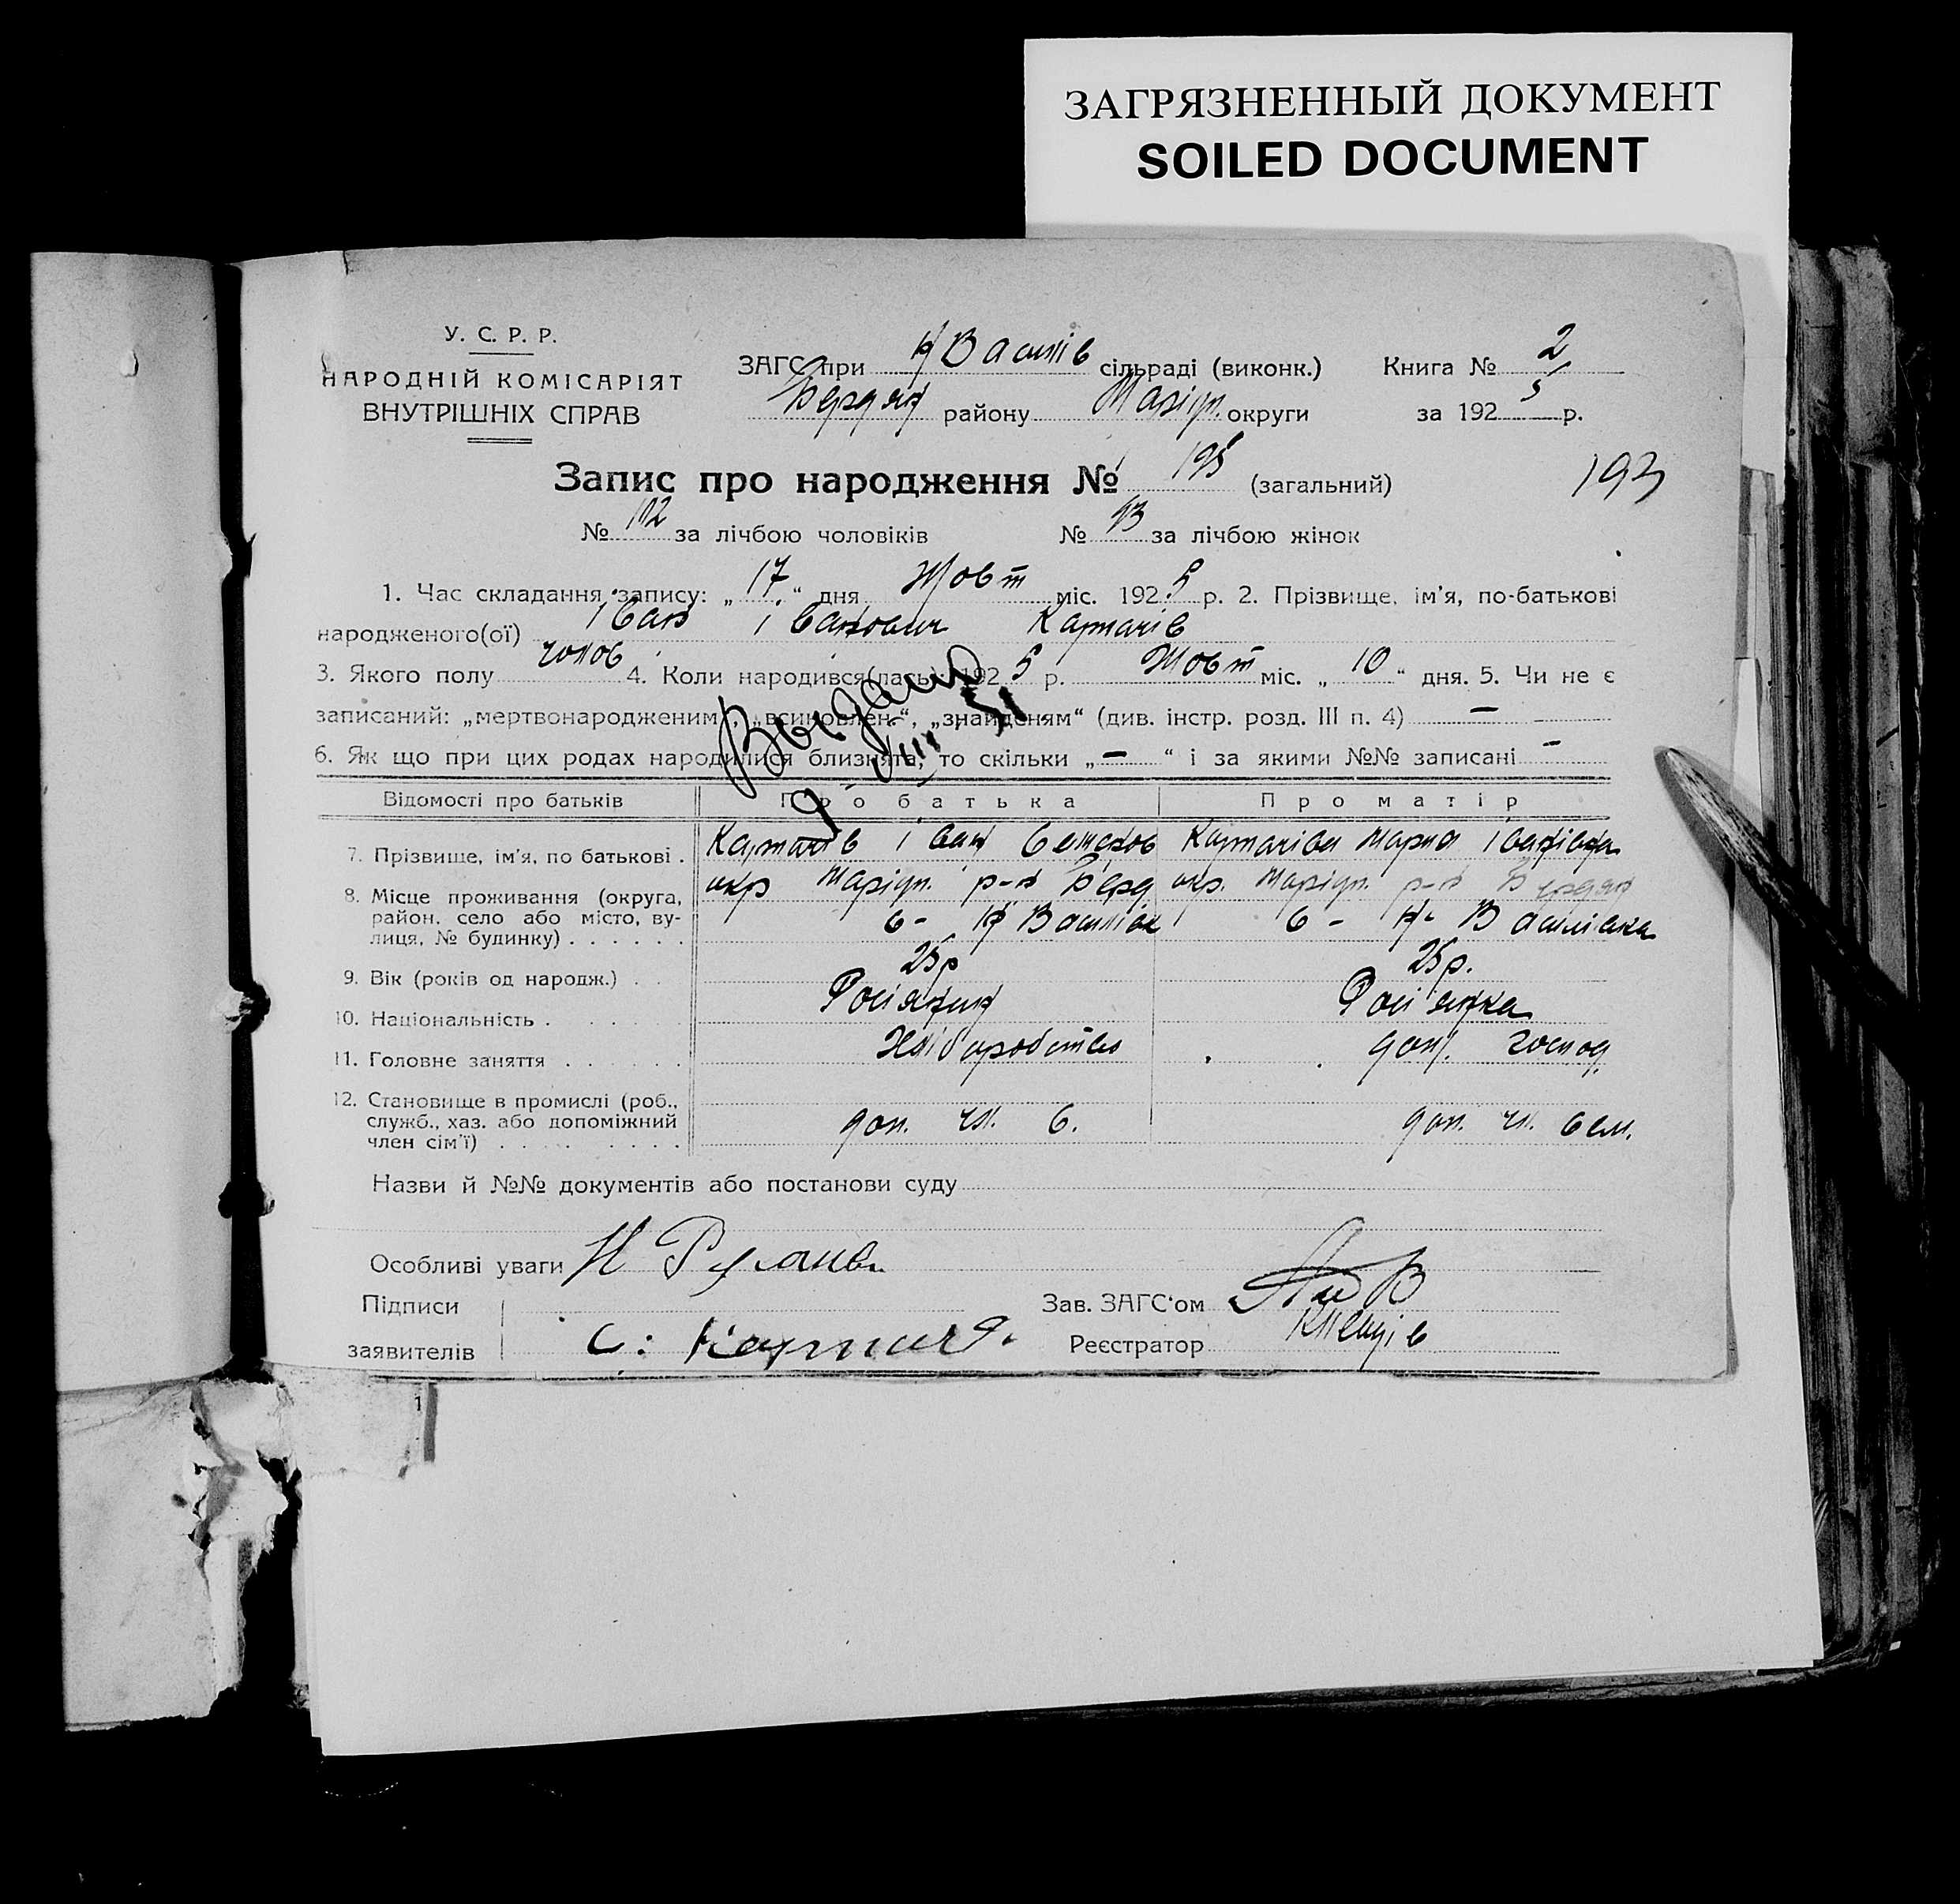 ЗАГРЯЗНЕННЫЙ ДОКУМЕНТ
SOILED DOCUMENT
У. С. Р. Р.
НАРОДНІЙ КОМІСАРІЯТ
ВНУТРІШНІХ СПРАВ
ЗАГС при Н Василів сільраді (виконк.) Книга № 2
Бердян району Маріуп. округи за 1925 р.
Запис про народження № 195 (загальний) 193
№ 102 за лічбою чоловіків № 93 за лічбою жінок
1. Час складання запису: „17“ дня Жовт міс. 1925 р. 2. Прізвище, ім'я, по-батькові
народженого(ої) Іван Іванович
3. Якого полу чолов 4. Коли народився(лась) 1925 р. Жовт міс. „10“ дня. 5. Чи не є
записаний: „мертвонародженим“, „всиновлен.“, „знайденям“ (див. інстр. розд. III п. 4) —
6. Як що при цих родах народилися близнята, то скільки „—“ і за якими №№ записані —
Выдано
9 VIII 51
Відомості про батьків Про батька Про матір
7. Прізвище, ім'я, по батькові . Іван Семенов Мария Іванівна
8. Місце проживання (округа, район, село або місто, вулиця, № будинку) . . . . . . окр Маріуп. р-н Берд с- Н Василівк окр. Маріуп. р-н Бердян с- Н- Василівка
9. Вік (років од народж.) . . 25р 25р.
10. Національність . . . . . . Росіянин Росіянка
11. Головне заняття . . . . . . Хліборобство дом. господ.
12. Становище в промислі (роб., служб., хаз. або допоміжний член сім'ї) . . . . . . . . . доп. чл. с. доп. чл. сем.
Назви й №№ документів або постанови суду
Особливі уваги
Підписи
заявителів
Зав. ЗАГС'ом
Реєстратор